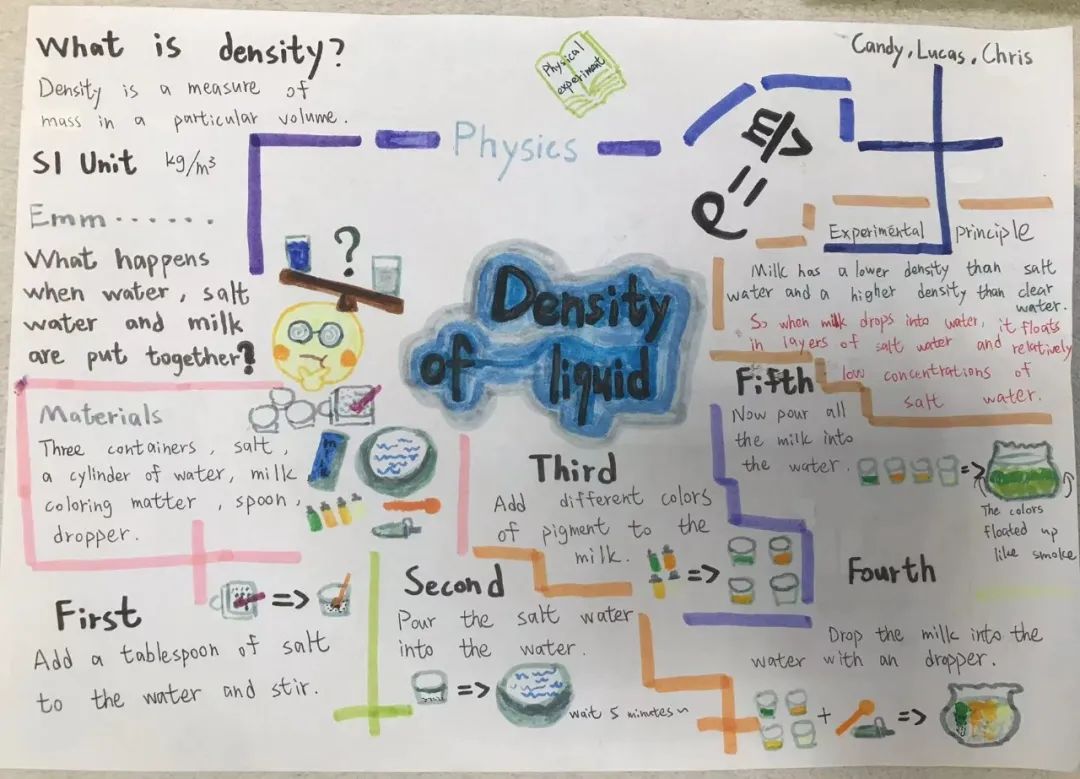 What is density?
Density is a measure of
mass in a particular volume.
SI Unit kg/m³
Emm ......
What happens
when water, salt
water and milk
are put together?
?
Physical
experiment
Physics
Candy, Lucas, Chris
ρ = m/V
Experimental principle
Milk has a lower density than salt
water and a higher density than clear
water.
So when milk drops into water, it floats
in layers of salt water and relatively
low concentrations of
salt water.
Density
of liquid
Materials
Three containers, salt,
a cylinder of water, milk
coloring matter, spoon,
dropper.
First
Add a tablespoon of salt
to the water and stir.
=>
Second
Pour the salt water
into the water.
=>
wait 5 minutes~
Third
Add different colors
of pigment to the
milk.
=>
Fourth
Drop the milk into the
water with an dropper.
+ =>
Fifth
Now pour all
the milk into
the water.
=>
The colors
floated up
like smoke